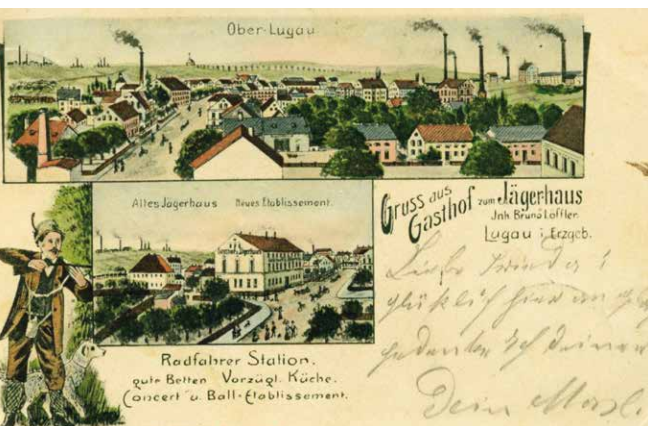 Ober-Lugau
Altes Jägerhaus Neues Etablissement.
Gruss aus
Gasthof zum Jägerhaus
Inh. Bruno Löffler.
Lugau i. Erzgeb.
Radfahrer Station.
gute Betten Vorzügl. Küche.
Concert u. Ball-Etablissement.
Liebe
hier an
gedenke ich deiner
Dein